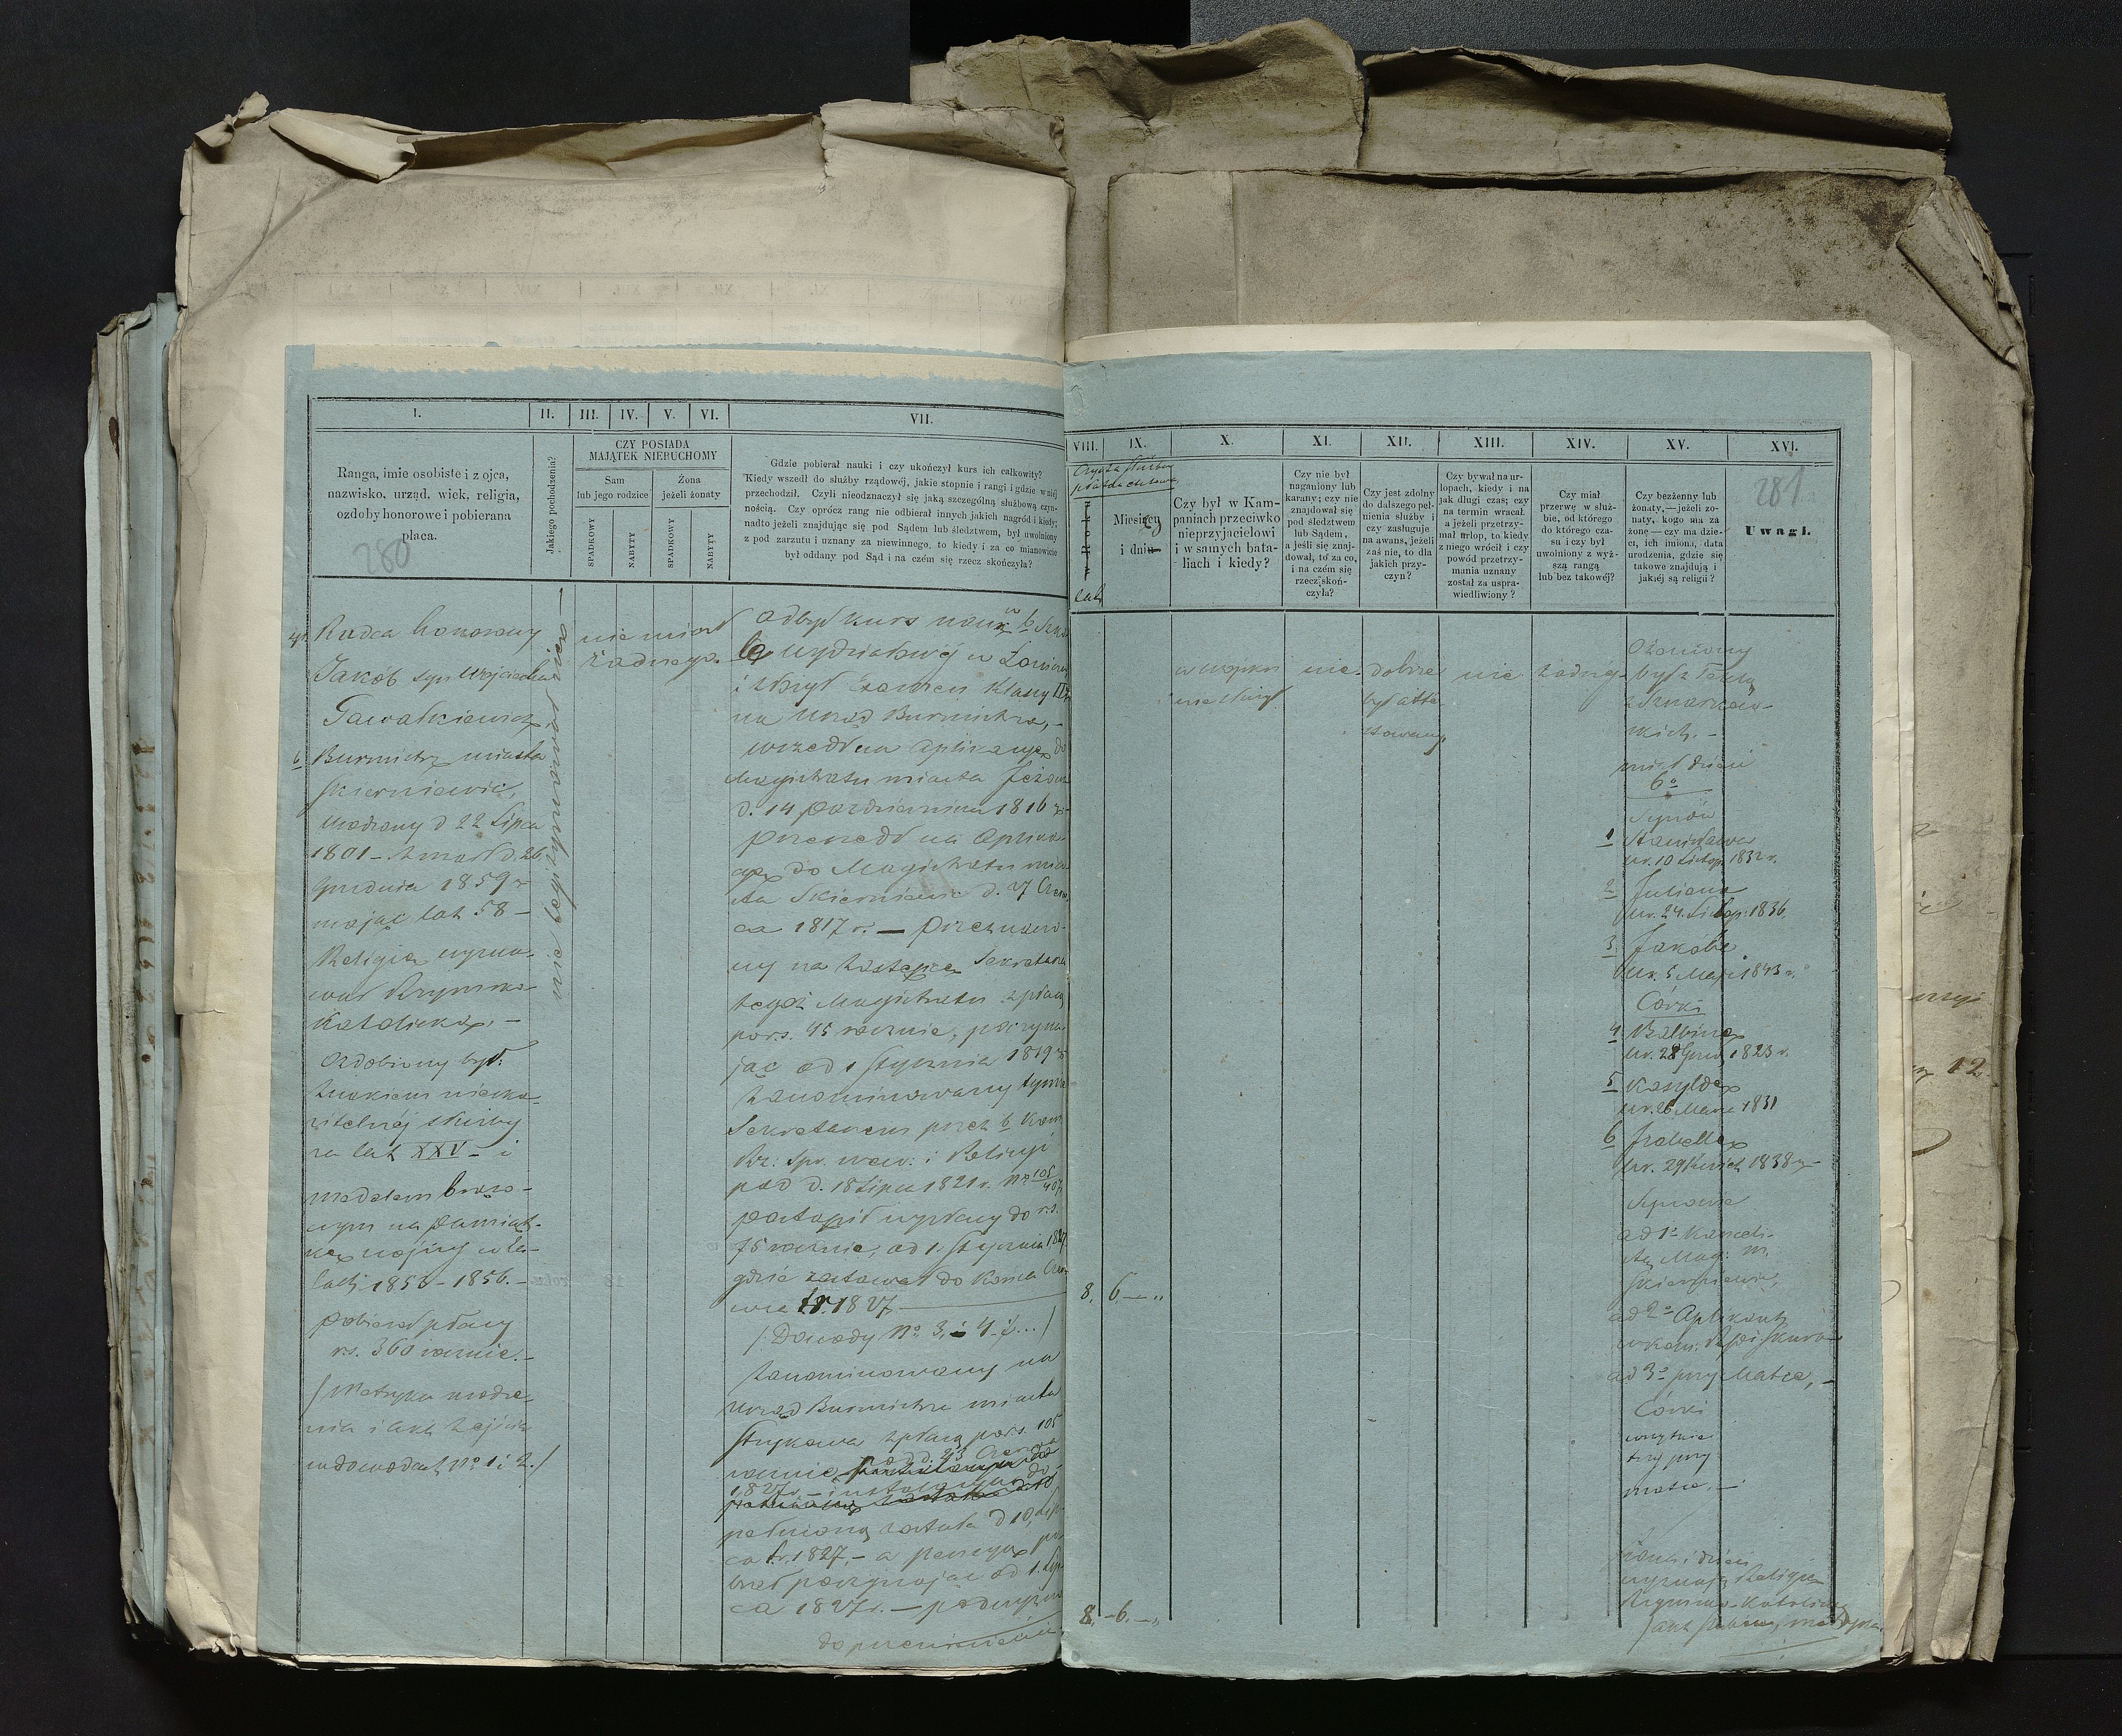 I.
II.
III.
IV.
V.
VI.
VII.
Ranga, imie osobiste i z ojca,
nazwisko, urząd, wiek, religia,
ozdoby honorowe i pobierana
płaca.
280
Jakiego pochodzenia?
CZY POSIADA
MAJĄTEK NIERUCHOMY
Sam
lub jego rodzice
Żona
jeżeli żonaty
SPADKOWY
NABYTY
SPADKOWY
NABYTY
Gdzie pobierał nauki i czy ukończył kurs ich całkowity?
Kiedy wszedł do służby rządowéj, jakie stopnie i rangi i gdzie w niéj
przechodził. Czyli nieodznaczył się jaką szczególną służbową czyn-
nością. Czy oprócz rang nie odbierał innych jakich nagród i kiedy;
nadto jeżeli znajdując się pod Sądem lub śledztwem, był uwolniony
z pod zarzutu i uznany za niewinnego, to kiedy i za co mianowicie
był oddany pod Sąd i na czém się rzecz skończyła?
Radca honorowy
Jakób syn Wojciecha
Gawałkiewicz
Burmistrz miasta
Skierniewic,
urodzony d 22 Lipca
1801 – zmarł d. 26
Grudnia 1859 r
mając lat 58 –
Religią wyzna-
wał Rzymsko
Katolicką. –
Ozdobiony był:
znakiem nieska-
zitelnéj służby
za lat XXV – i
medalem bronzo-
wym na pamiąt-
kę wojny w la-
tach 1853 – 1856. –
pobierał płacy
rs. 360 rocznie. –
/ Metryka urodze-
nia i akt zejścia
w dowodach No 1 i 2. /
nie legitymował się –
nie miał
żadnego.
odbył kurs nauk w b. Szko
le wydziałowéj w Łowiczu
i złożył examen klassy II
na urząd Burmistrza, –
wszedł na aplikacyę do
Magistratu miasta Jeżowa
d. 14 października 1816 r
przeszedł na aplika-
cyę do Magistratu mia
sta Skierniewic d. 7 Czerw
ca 1817 r. –
ny na zastępcę Sekretarza
tegoż Magistratu z płacą
po rs. 45 rocznie, poczyna-
jąc od 1 Stycznia 1819 r
zanominowany tymże
Sekretarzem przez b. Kom
Rz: Spr. wew: i Policyi
pod d. 18 Lipca 1821 r. No
postąpił w płacy do rs.
75 rocznie, od 1. Stycznia 1827
gdzie zostawał do końca Czer
wca 1827
/ Dowody No 3, i 4 /
zanominowany na
urząd Burmistrza miasta
Strykowa z płacą po rs. 105
rocznie pod d. 23 Czerwca
1827 r. – instalacyja do-
pełnioną została d 10 Lip-
ca t.r. 1827. – a pensyę po-
brał poczynając od 1. Lip-
ca 1827 r. –
do przeniesienia
VIII.
IX.
X.
XI.
XII.
XIII.
XIV.
XV.
XVI.
Czysta służba
lat
Miesięcy
i dni
Czy był w Kam-
paniach przeciwko
nieprzyjacielowi
i w samych bata-
liach i kiedy?
Czy nie był
naganiony lub
karany; czy nie
znajdował się
pod śledztwem
lub Sądem,
a jeśli się znaj-
dował, to za co,
i na czém się
rzecz skoń-
czyła?
Czy jest zdolny
do dalszego peł-
nienia służby i
czy zasługuje
na awans, jeżeli
zaś nie, to dla
jakich przy-
czyn?
Czy bywał na ur-
lopach, kiedy i na
jak długi czas; czy
na termin wracał,
a jeżeli przetrzy-
mał urlop, to kiedy
z niego wrócił i czy
powód przetrzy-
mania uznany
został za uspra-
wiedliwiony?
Czy miał
przerwę w służ-
bie, od którego
do którego cza-
su i czy był
uwolniony z wyż-
szą rangą
lub bez takowéj?
Czy bezżenny lub
żonaty,—jeżeli żo-
naty, kogo ma za
żonę—czy ma dzie-
ci, ich imiona, data
urodzenia, gdzie się
takowe znajdują i
jakiéj są religii?
281
Uwagi.
w wojsku
nie służył
nie.
dobrze
był atte
stowany
nie
żadnéj
Ożeniony
był z Teklą
z Sznarzew-
skich. –
miał dzieci
6o
Synów
1 Stanisława
ur. 10 Listop. 1832 r.
2 Juliana
ur. 24. Listop: 1836.
3 Jakóba
ur. 5 Maja 1843 r.
Córki
4 Balbinę
ur. 28 Grud. 1823 r.
5 Kasyldę
ur. 26 Marca 1831
6 Izabellę
ur. 29 Kwiet. 1838 r
Synowie
ad 1o Kancelli-
sta Mag: m.
Skierniewic,
ad 2o Aplikant
ad 3o przy Matce, –
Córki
wszystkie
trzy przy
matce. –
8. 6 – „
żona i dzieci
wyznają Religią
Rzymsko-Katolicką
8. – 6. – „